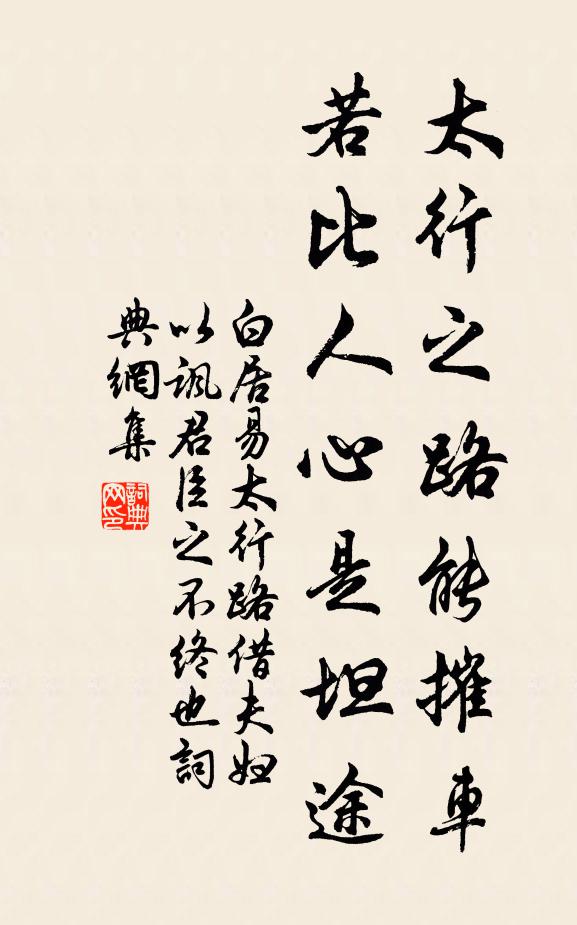 太行之路能摧車
若比人心是坦途
白居易太行路借夫婦
以諷君臣之不終也詞
典網集
詞典
网印